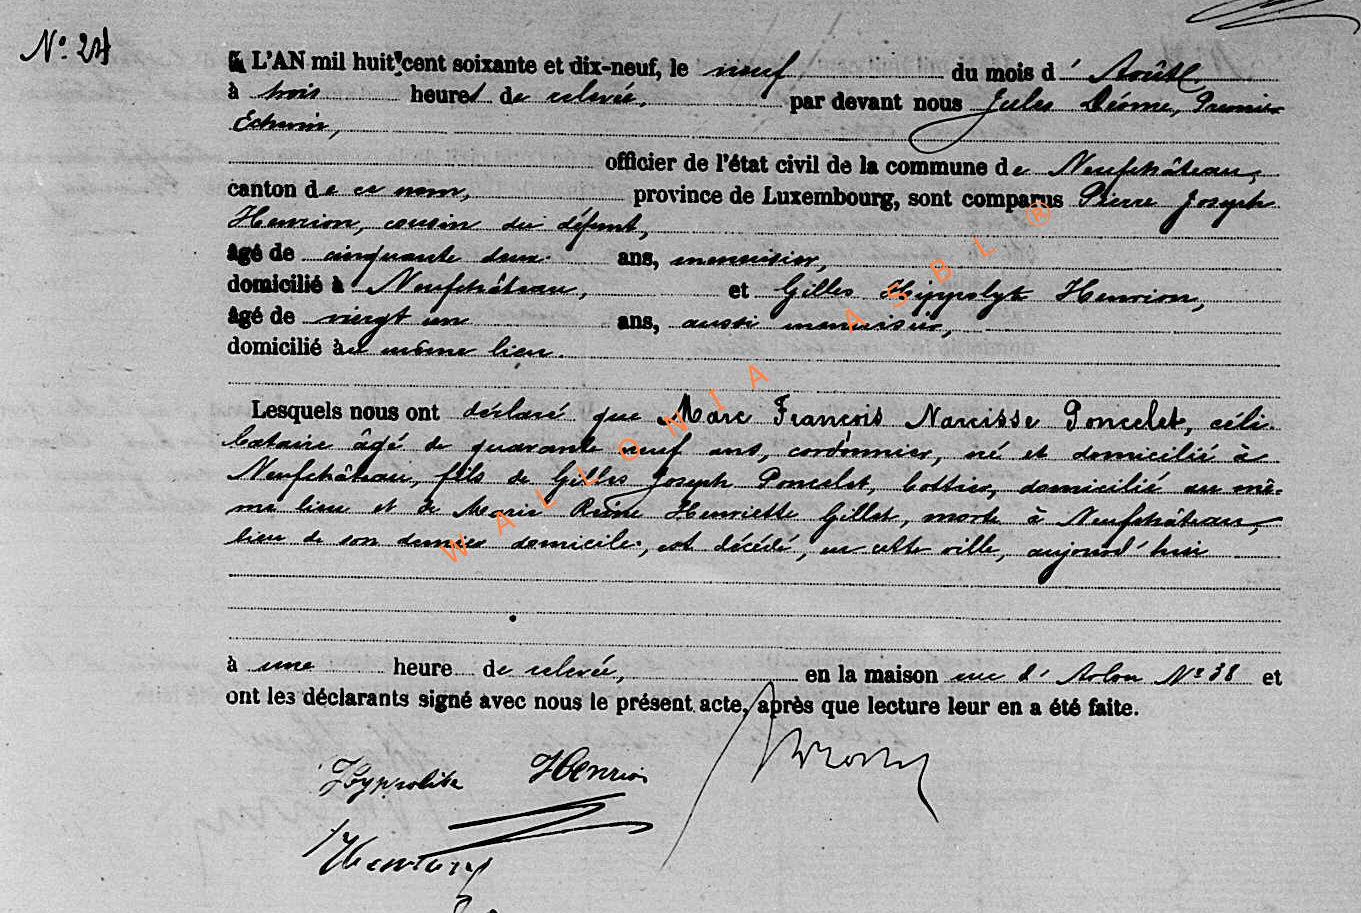 N° 24
L'AN mil huit cent soixante et dix-neuf, le neuf du mois d' Août
à trois heures de relevée, par devant nous Jules Déome, Premier
Echevin,
officier de l'état civil de la commune de Neufchâteau,
canton de ce nom, province de Luxembourg, sont comparus Pierre Joseph
Henrion, cousin du défunt,
âgé de cinquante deux ans, menuisier,
domicilié à Neufchâteau, et Gilles Hippolyte Henrion,
âgé de vingt un ans, aussi menuisier,
domicilié au même lieu.
Lesquels nous ont déclaré que Marc François Narcisse Poncelet, céli-
bataire âgé de quarante neuf ans, cordonnier, né et domicilié à
Neufchâteau, fils de Gilles Joseph Poncelet, bottier, domicilié au mê-
me lieu et de Marie Reine Henriette Gillet, morte à Neufchâteau,
lieu de son dernier domicile, est décédé, en cette ville, aujourd'hui
à une heure de relevée, en la maison rue d'Arlon N° 38 et
ont les déclarants signé avec nous le présent acte, après que lecture leur en a été faite.
Hyppolite Henrion
Henrion
WALLONIA ASBL ®